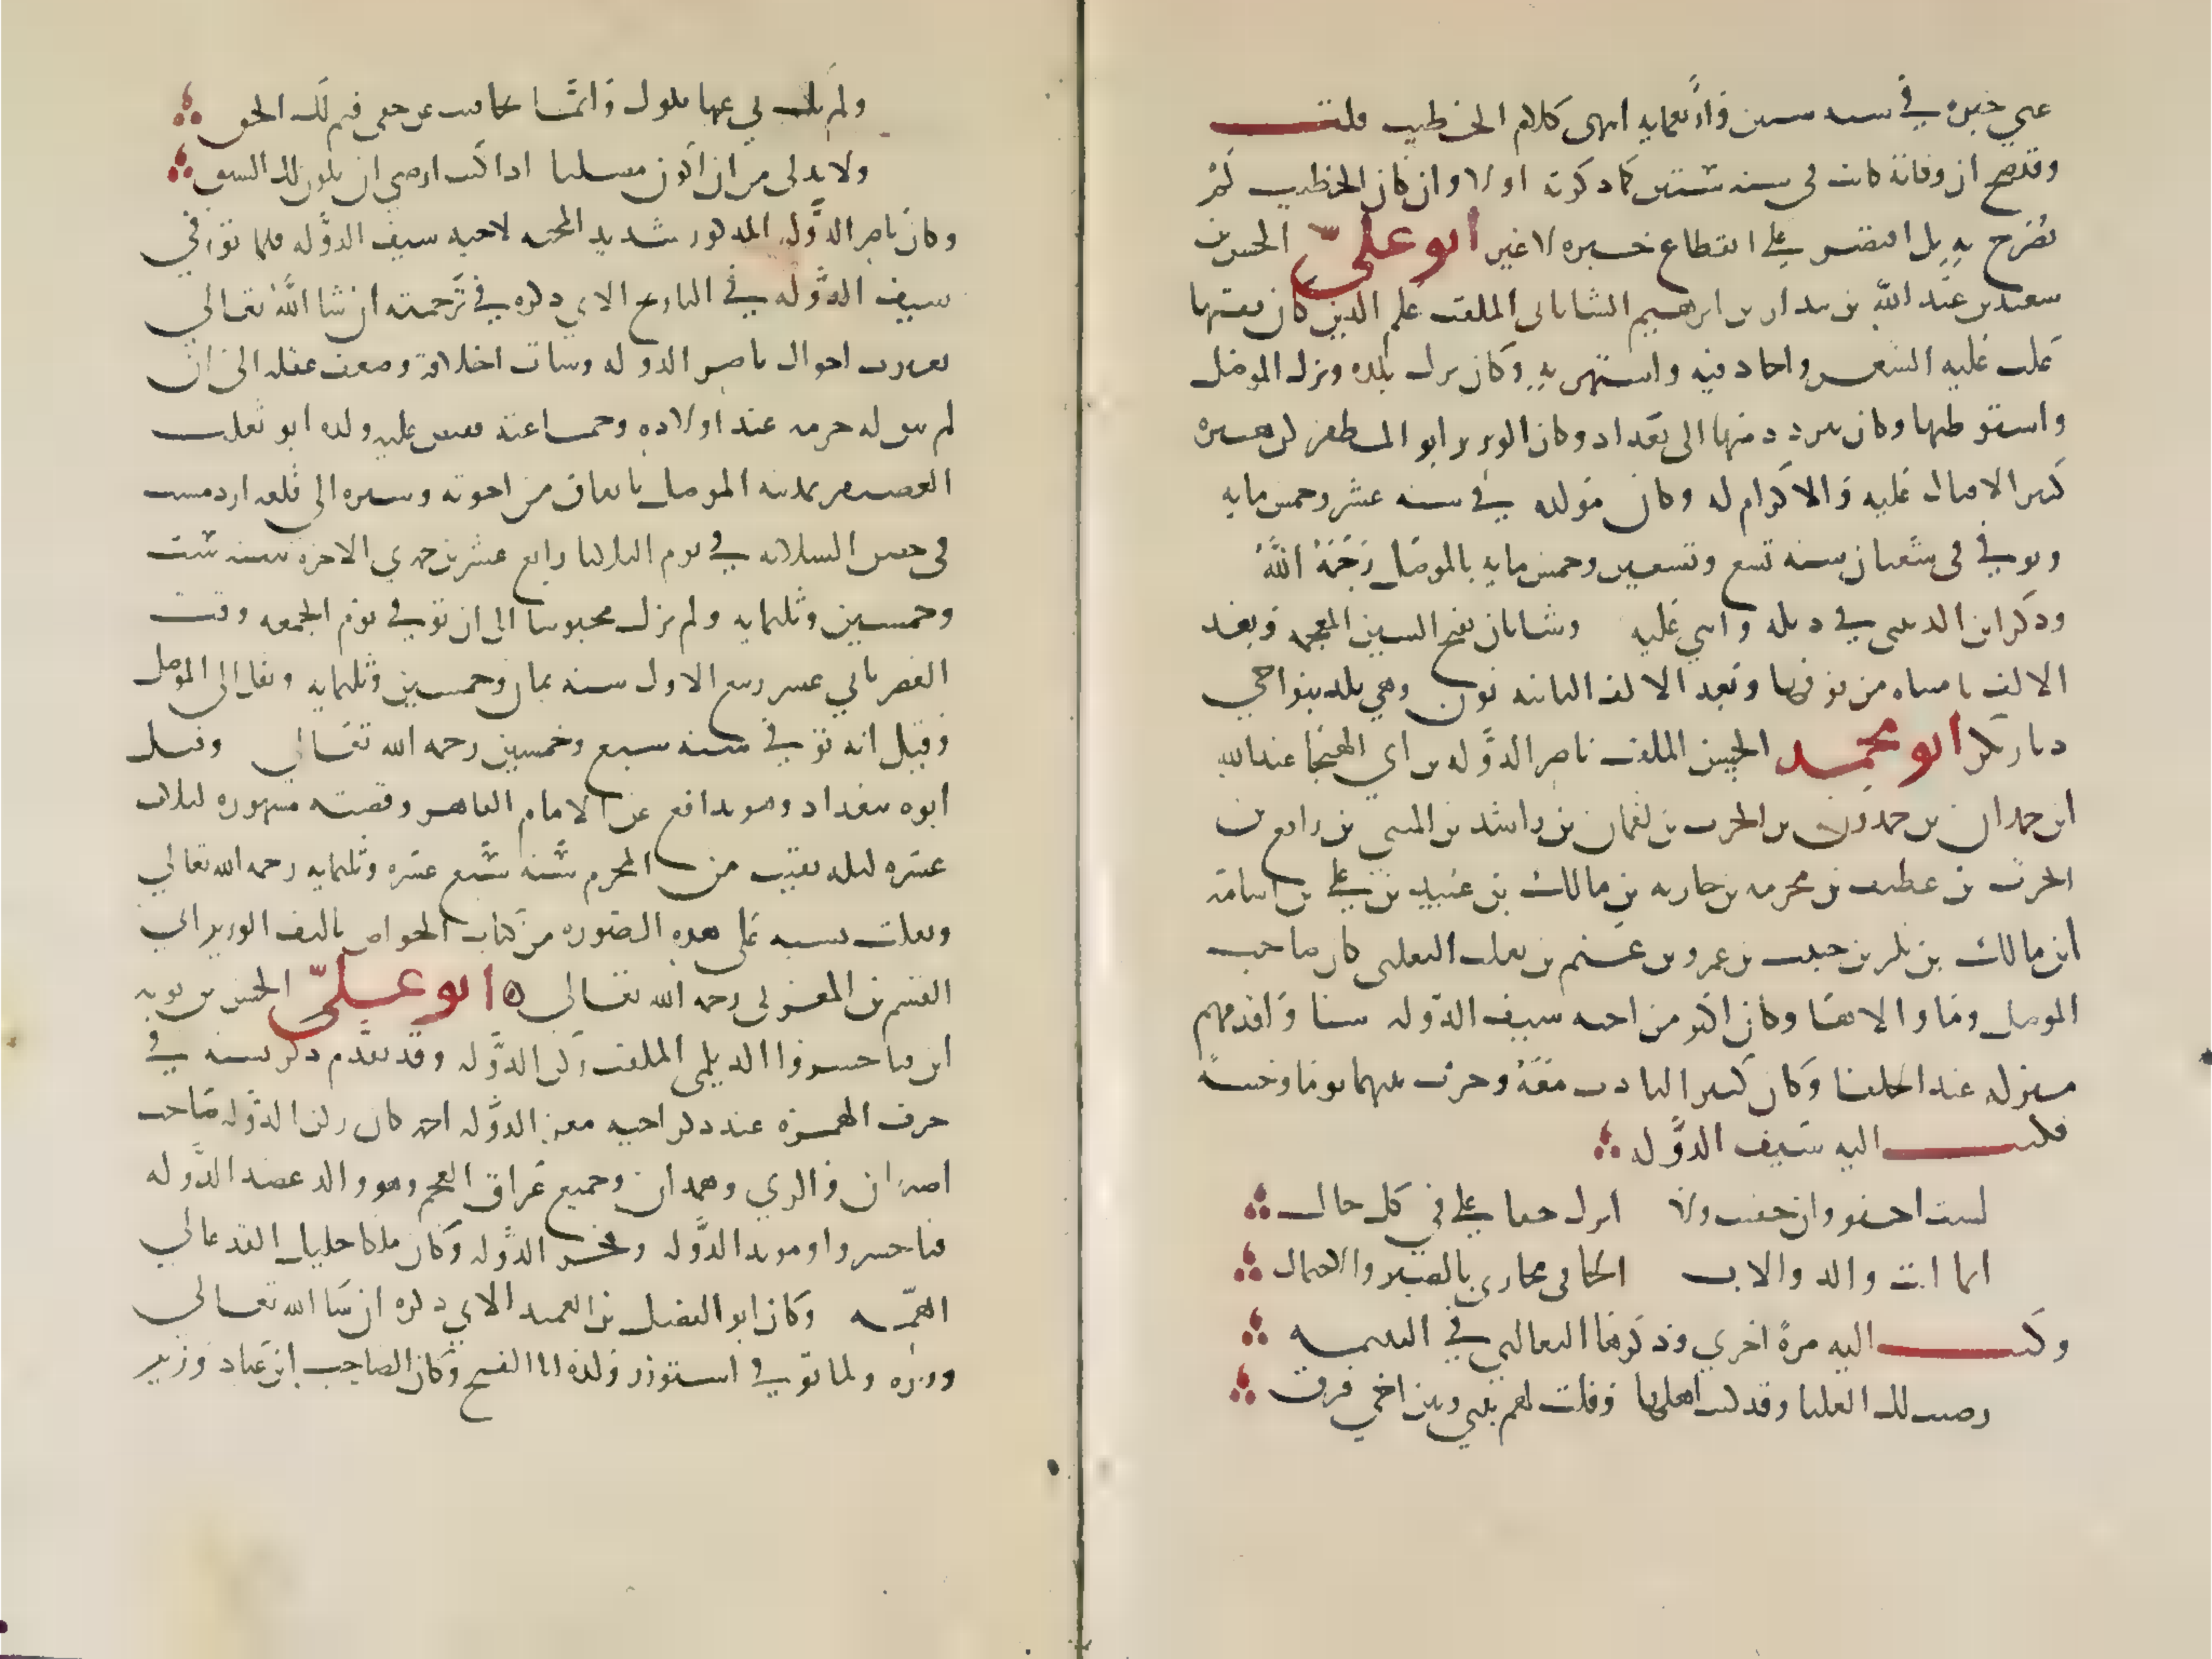 عني خبره في سنه ستين واربعمايه انتهى كلام الخطيب قلت
وقد صح ان وفاته كانت في سنه ستين كما ذكرته اولا وان كان الخطيب لم
يصرح به بل اقتصر على انقطاع خبره لا غير ابو علي الحسن بن
سعيد بن عبد الله بن بندار بن ابرهيم الشاتاني الملقب علم الدين كان فقيها
غلب عليه الشعر واجاد فيه واشتهر به وكان ترك بلده ونزل الموصل
واستوطنها وكان يتردد منها الى بغداد وكان الوزير ابو المظفر بن هبيره
كثير الاقبال عليه والاكرام له وكان مولده في سنه عشر وخمس مايه
وتوفي في شعبان سنه تسع وتسعين وخمس مايه بالموصل رحمه الله
وذكر ابن الدبيثي في ذيله واثنى عليه وشاتان بفتح الشين المعجمه وبعد
الالف تا مثناه من فوقها وبعد الالف الثانيه نون وهي بلد بنواحي
ديار بكر ابو محمد الحسن الملقب ناصر الدوله بن ابي الهيجا عبد الله
ابن حمدان بن حمدون بن الحرث بن لقمان بن راشد بن المثنى بن رافع بن
الحرث بن غطيف بن محربه بن حاربه بن مالك بن عبيد بن علي بن اسامه
ابن مالك بن بكر بن حبيب بن عمرو بن غنم بن تغلب التغلبي كان صاحب
الموصل وما والاها وكان اكبر من اخيه سيف الدوله سنا واقدمهم
منزله عند الخلفا وكان كثير التادب معه وجرت بينهما يوما وحشه
فكتب اليه سيف الدوله
لست اجفو وان جفيت ولا اترك حقا علي في كل حال
انما انت والد والاب الجافي يجازى بالصبر والاحتمال
وكتب اليه مرة اخرى وذكرها الثعالبي في اليتيمه
رضيت لك العليا وقد كنت اهلها وقلت لهم بيني وبين اخي فرق
ولم يك بي عنها نكول وانما تجافيت عن حقي فتم لك الحق
ولا بد لي من ان اكون مصليا اذا كنت ارضى ان يكون لك السبق
وكان ناصر الدوله المذكور شديد المحبه لاخيه سيف الدوله فلما توفي
سيف الدوله في التاريخ الاتي ذكره في ترجمته ان شا الله تعالى
تغيرت احوال ناصر الدوله وسات اخلاقه وضعف عقله الى ان
لم يبق له حرمه عند اولاده وجماعته فقبض عليه ولده ابو تغلب
الغضنفر بمدينه الموصل باتفاق من اخوته وسيره الى قلعه اردمشت
في حصن السلامه في يوم الثلاثا رابع عشر بن جمدي الاخره سنه ست
وخمسين وثلثمايه ولم يزل محبوسا الى ان توفي يوم الجمعه وقت
العصر ثاني عشر ربيع الاول سنه ثمان وخمسين وثلثمايه ونقل الى الموصل
وقيل انه توفي سنه سبع وخمسين رحمه الله تعالى وقتل
ابوه ببغداد وهو يدافع عن الامام القاهر وقصته مشهوره لثلاث
عشره ليله بقيت من المحرم سنه سبع عشره وثلثمايه رحمه الله تعالى
ونقلت نسبه على هذه الصوره من كتاب الخواص تاليف الوزير ابي
القسم بن المغربي رحمه الله تعالى ابو علي الحسن بن بويه
ابن فنا خسروا الديلمي الملقب ركن الدوله وقد تقدم ذكر نسبه في
حرف الهمزه عند ذكر اخيه معز الدوله احمد كان ركن الدوله صاحب
اصبهان والري وهمدان وجميع عراق العجم وهو والد عضد الدوله
فنا خسروا ومويد الدوله وفخر الدوله وكان ملكا جليل القدر عالي
الهمه وكان ابو الفضل بن العميد الاتي ذكره ان شا الله تعالى
وزيره ولما توفي استوزر ولده ابا الفتح وكان الصاحب ابن عباد وزير